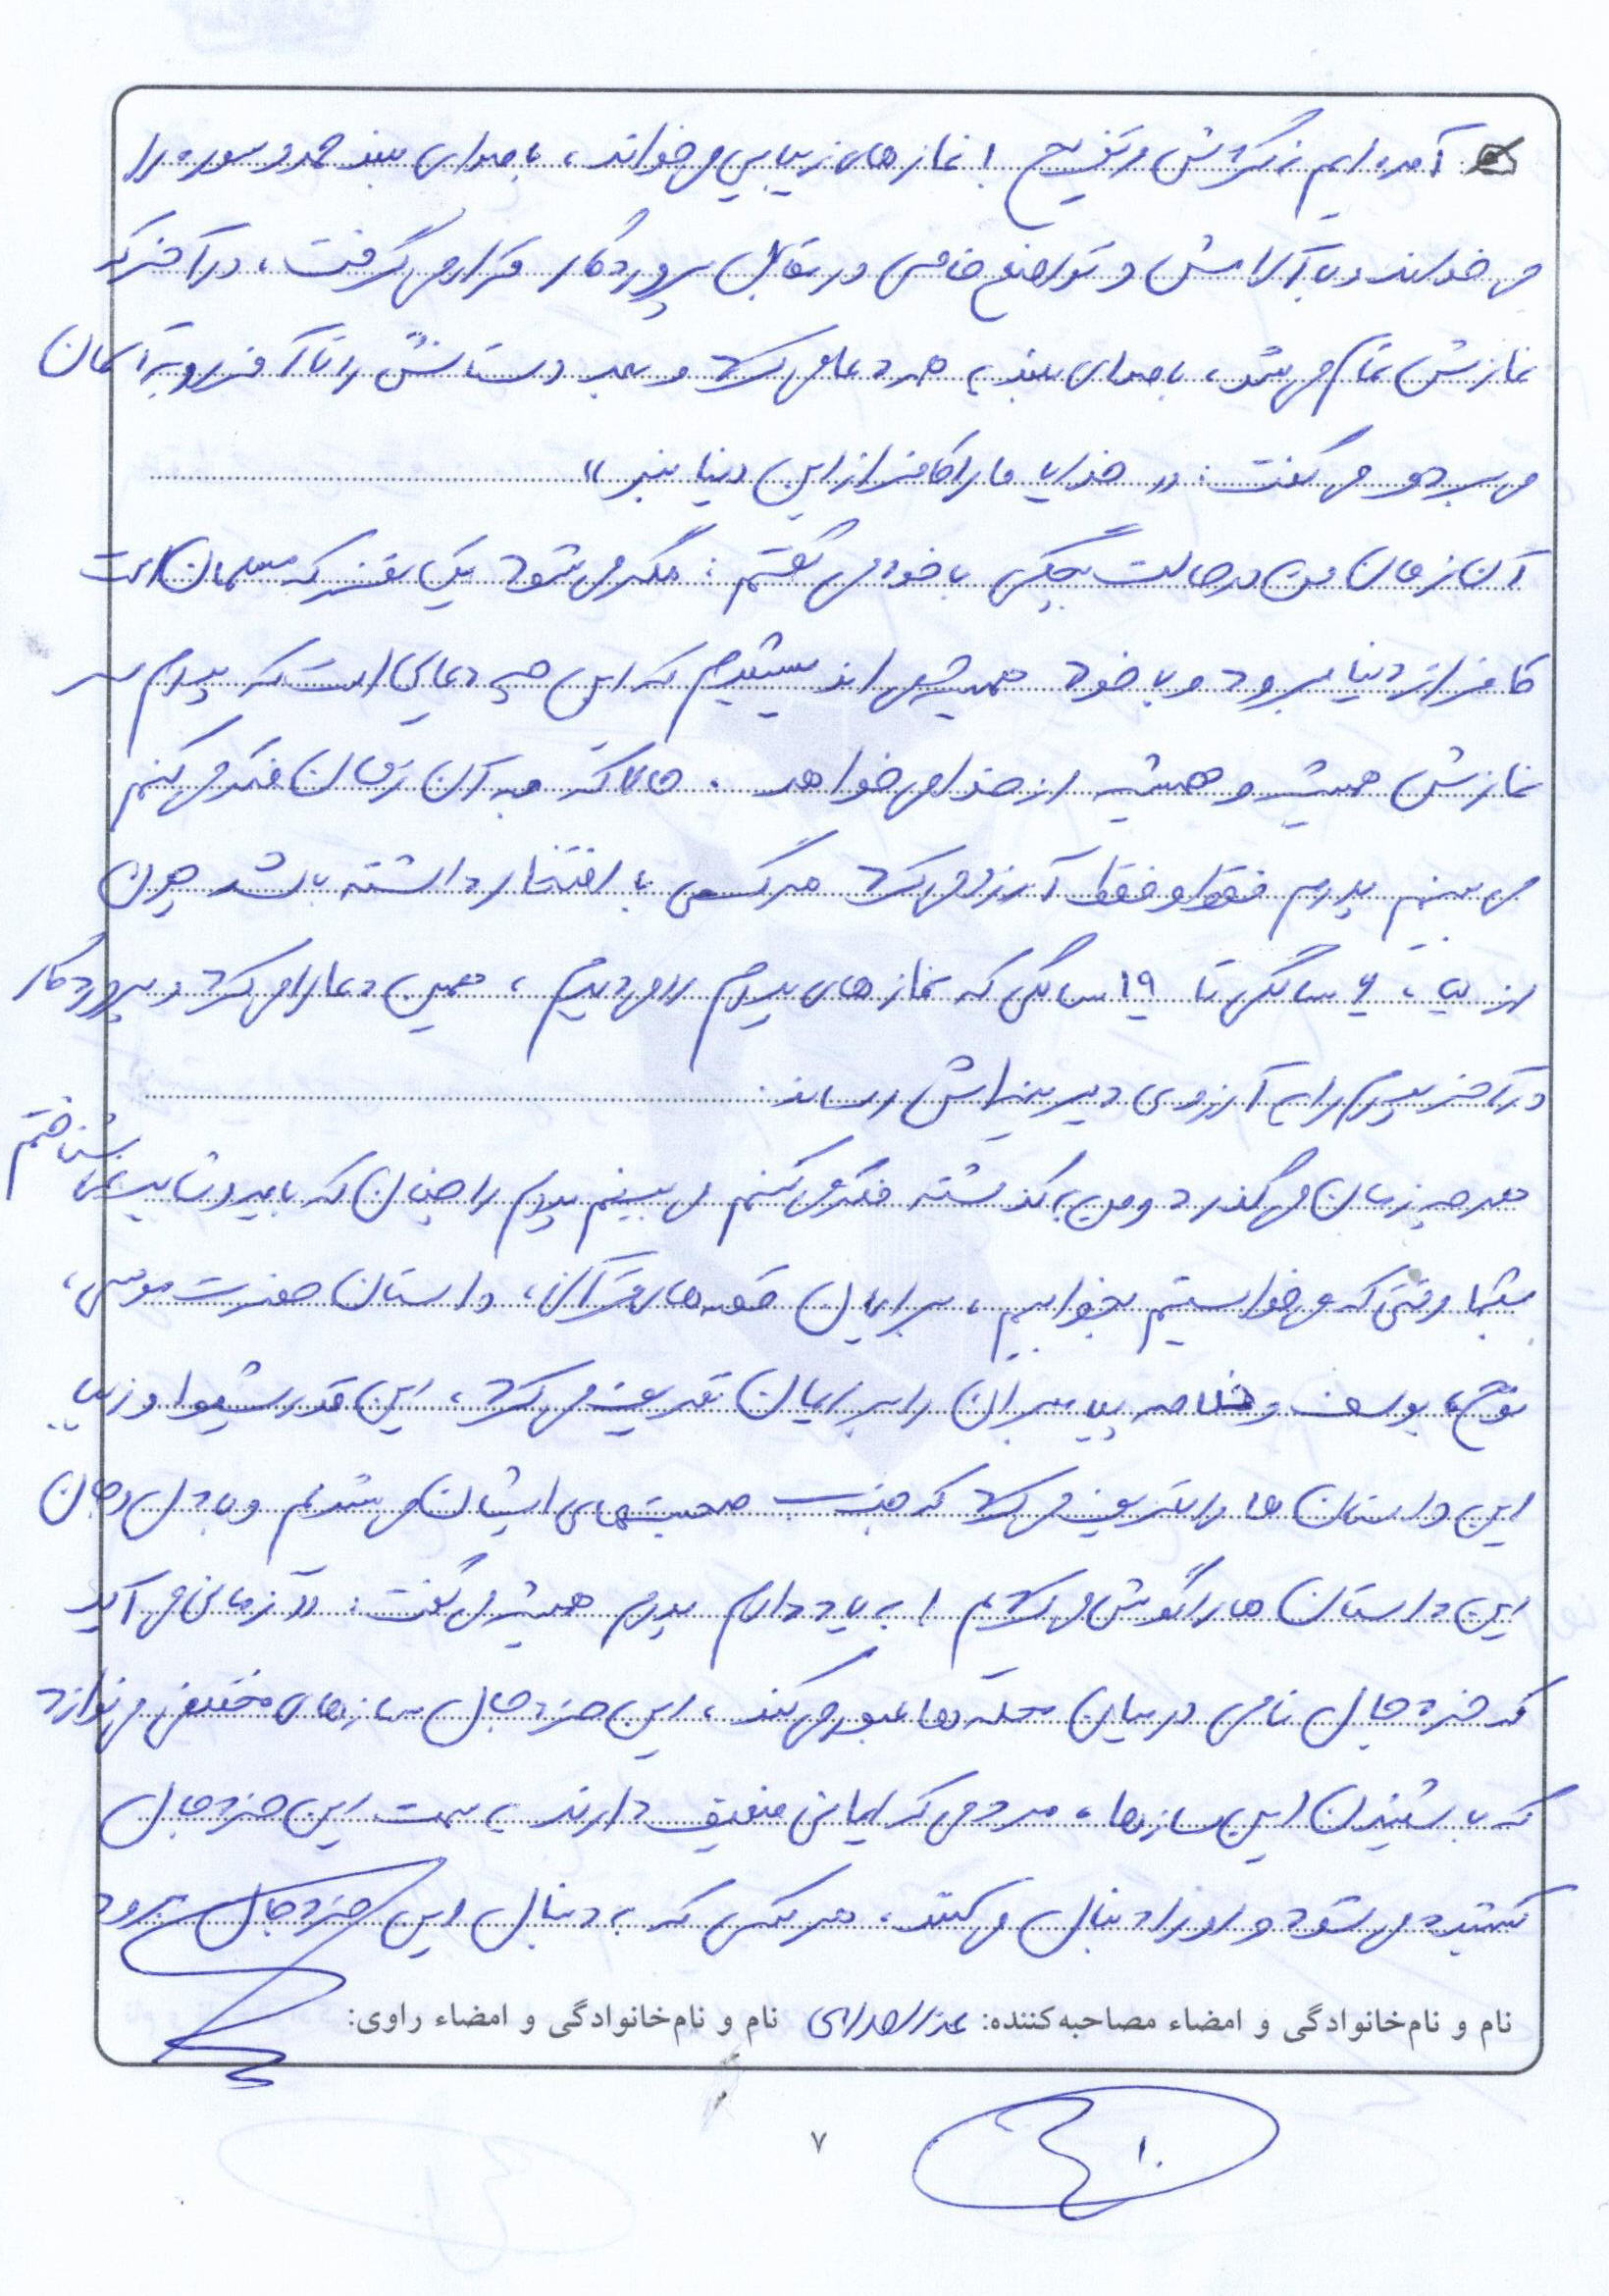 آمده‌ایم گردش و تفریح! نمازهای زیبایی می‌خواند، با صدای بلند حمد و سوره را
می‌خواند و با آرامش و تواضع خاصی در مقابل پروردگار قرار می‌گرفت، در آخر که
نمازش تمام می‌شد، با صدای بلند دعا می‌کرد و بعد دستانش را تا آخر رو به آسمان
می‌برد و می‌گفت: «خدایا ما را کافر از این دنیا نبر»
آن زمان من در حالت بچگی با خود می‌گفتم: مگر می‌شود یک نفر که مسلمان است
کافر از دنیا برود و با خود همیشه می‌اندیشیدم که این چه دعایی است که پدرم سر
نمازش همیشه و همیشه از خدا می‌خواهد. حالا که به آن زمان فکر می‌کنم
می‌بینم پدرم فقط و فقط آرزو می‌کرد مرگی با افتخار داشته باشد چون
از ۶ سالگی تا ۱۹ سالگی که نمازهای پدرم را می‌دیدم، همین دعا را می‌کرد و پروردگار
در آخر پدرم را به آرزوی دیرینه‌اش رساند.
هر چه زمان می‌گذرد و من به گذشته فکر می‌کنم می‌بینم پدرم را چنان که باید و شاید نشناختم
شبها وقتی که می‌خواستیم بخوابیم، برایمان قصه‌های قرآنی، داستان حضرت موسی،
نوح، یوسف و خلاصه پیامبران را برایمان تعریف می‌کرد، این قدر شیوا و زیبا
این داستان ها را تعریف می‌کرد که جذب صحبتهای ایشان می‌شدیم و با دل و جان
این داستان ها را گوش می‌کردیم! به یاد دارم پدرم همیشه می‌گفت: «زمانی می‌آید
که خردجال نامی در میان محله‌ها عبور می‌کند، این خردجال سازهای مختلفی می‌نوازد
که با شنیدن این سازها، مردمی که ایمانی ضعیف دارند به سمت این خردجال
کشیده می‌شود و او را دنبال می‌کنند، هر کس که به دنبال این خردجال برود
نام و نام‌خانوادگی و امضاء مصاحبه‌کننده: نام و نام‌خانوادگی و امضاء راوی:
۷
۱۰